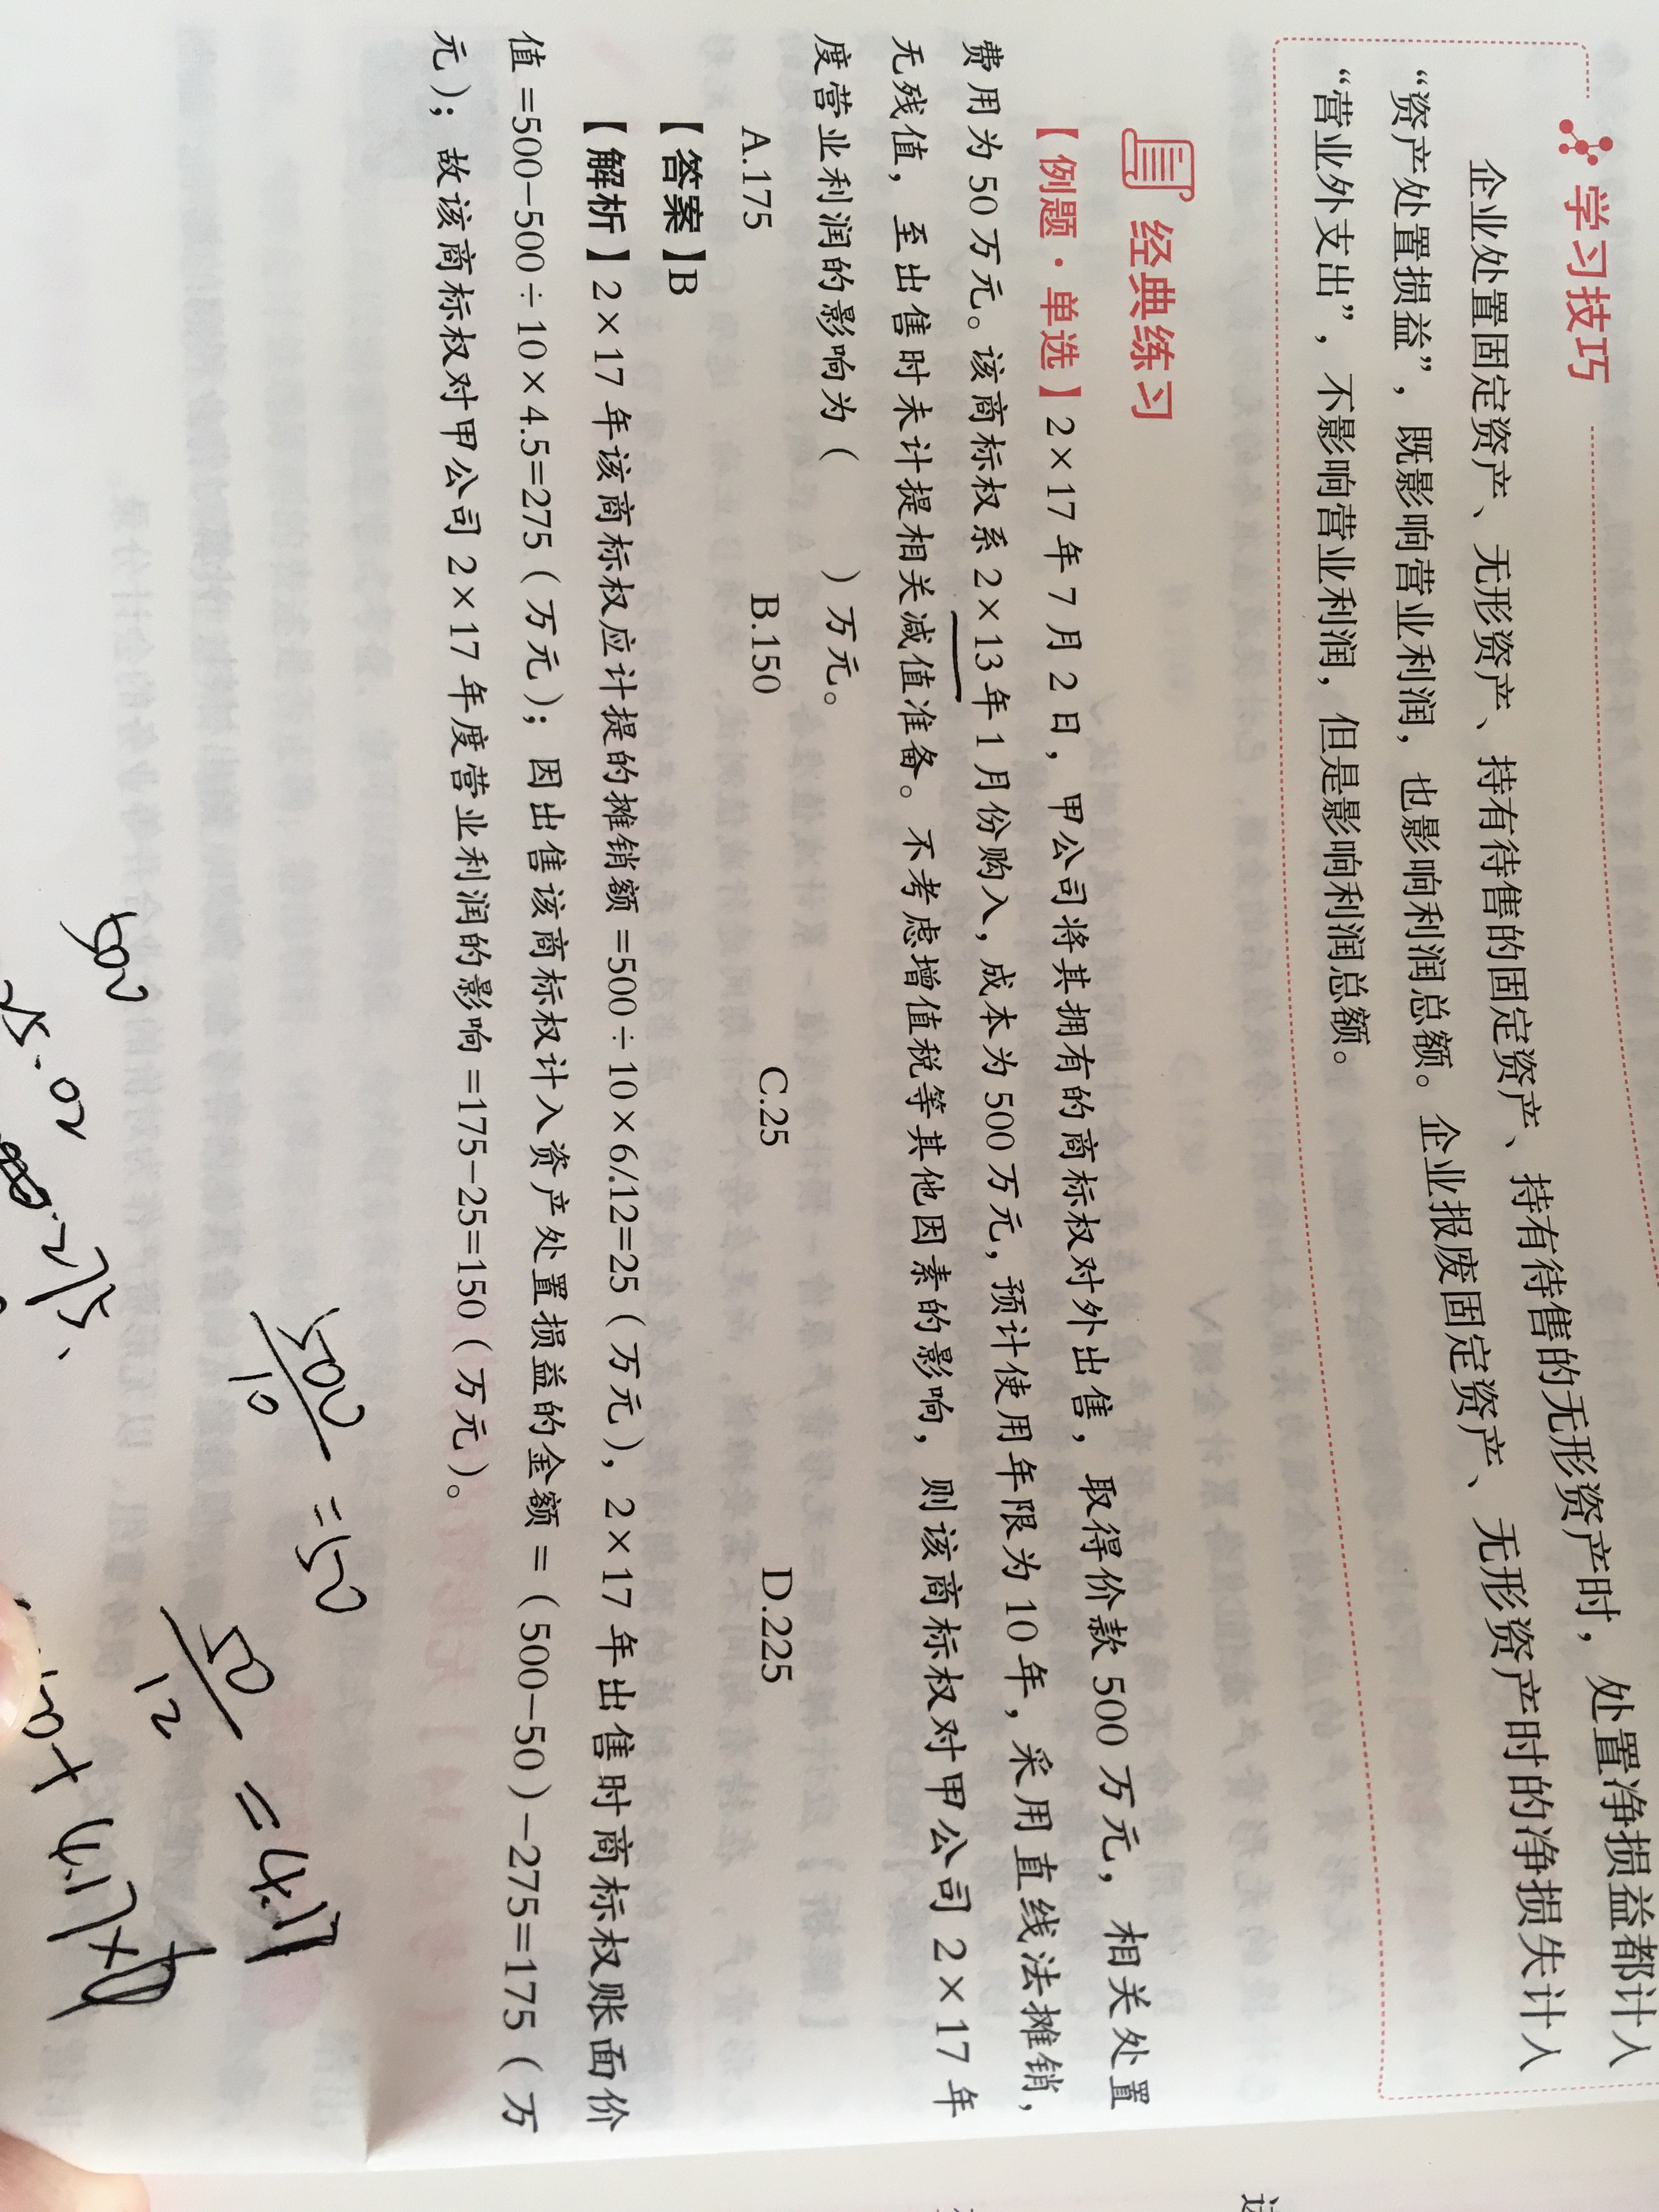 学习技巧
企业处置固定资产、无形资产、持有待售的固定资产、持有待售的无形资产时，处置净损益都计入
“资产处置损益”，既影响营业利润，也影响利润总额。企业报废固定资产、无形资产时的净损失计入
“营业外支出”，不影响营业利润，但是影响利润总额。
经典练习
【例题·单选】2×17年7月2日，甲公司将其拥有的商标权对外出售，取得价款500万元，相关处置
费用为50万元。该商标权系2×13年1月份购入，成本为500万元，预计使用年限为10年，采用直线法摊销，
无残值，至出售时未计提相关减值准备。不考虑增值税等其他因素的影响，则该商标权对甲公司2×17年
度营业利润的影响为（　　）万元。
A.175 B.150 C.25 D.225
【答案】B
【解析】2×17年该商标权应计提的摊销额=500÷10×6/12=25（万元），2×17年出售时商标权账面价
值=500-500÷10×4.5=275（万元）；因出售该商标权计入资产处置损益的金额=（500-50）-275=175（万
元）；故该商标权对甲公司2×17年度营业利润的影响=175-25=150（万元）。